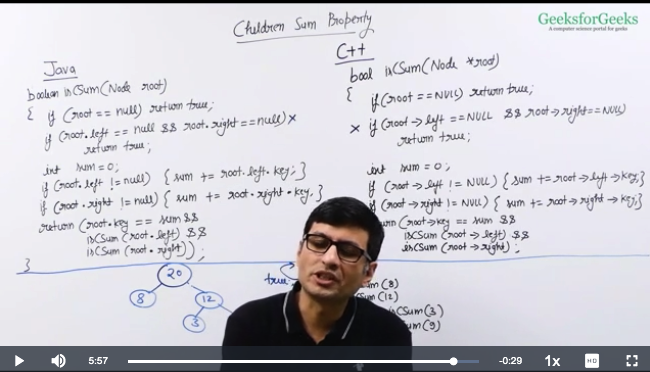 Children Sum Property
GeeksforGeeks
A computer science portal for geeks
Java
boolean isCSum(Node root)
{ if (root == null) return true;
if (root.left == null && root.right == null) x
return true;
int sum = 0;
if (root.left != null) { sum += root.left.key; }
if (root.right != null) { sum += root.right.key; }
return (root.key == sum &&
isCSum (root.left) &&
isCSum (root.right));
}
C++
bool isCSum(Node *root)
{ if (root == NULL) return true;
x if (root->left == NULL && root->right == NULL)
return true;
int sum = 0;
if (root->left != NULL) { sum += root->left->key; }
if (root->right != NULL) { sum += root->right->key; }
(root->key == sum &&
isCSum (root->left) &&
isCSum (root->right);
20
8
12
3
true
Sum (8)
Sum (12)
isCSum (3)
Sum (9)
5:57
-0:29
1x
HD